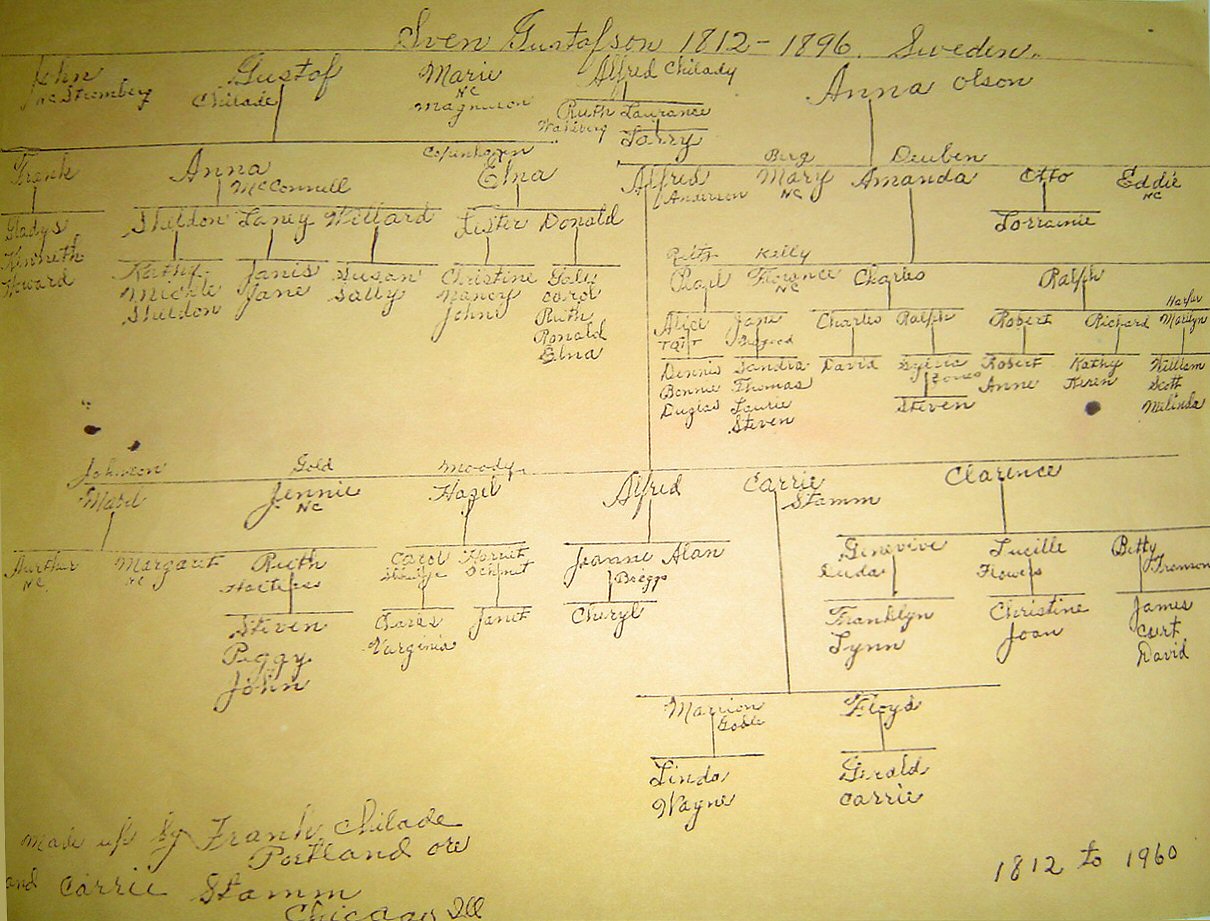 Sven Gustafson 1812-1896. Sweden.
John Gustof Marie Alfred Chilady Anna Olson
NC Stromberg Chilade NC Magnuson
Ruth Laurance
Wahlberg Larry
Copenhagen Berg Deuben
Frank Anna McConnell Elna Alfred Anderson Mary NC Amanda Otto Eddie NC
Gladys Sheldon Laney Willard Lester Donald Lorraine
Kenneth Kathy Janis Susan Christine Gale
Howard Mickie Jane Sally Nancy Carol
Sheldon John Ruth
Ronald
Elna
Ruth Kelly
Pearl Florence NC Charles Ralph
Harfur
Alice Jane Charles Ralph Robert Richard Marilyn
Dennis Sandra David Sylvia Robert Kathy William
Bonnie Thomas Anne Keren Scott
Duglas Laurie Steven Melinda
Steven
Johnson Gold Moody
Mabel Jennie NC Hazel Alfred Carrie Stamm Clarence
Aurthur NC Margaret NC Ruth Carol Harriet Joanne Alan Genevive Lucille Betty
Schmit Briggs Duda Flowers Fronson
Steven Janet Cheryl Franklyn Christine James
Peggy Virginia Lynn Joan Curt
John David
Marion Goble Floyd
Linda Gerald
Wayne Carrie
Made up by Frank Chilade
Portland Ore
and Carrie Stamm
Chicago Ill
1812 to 1960